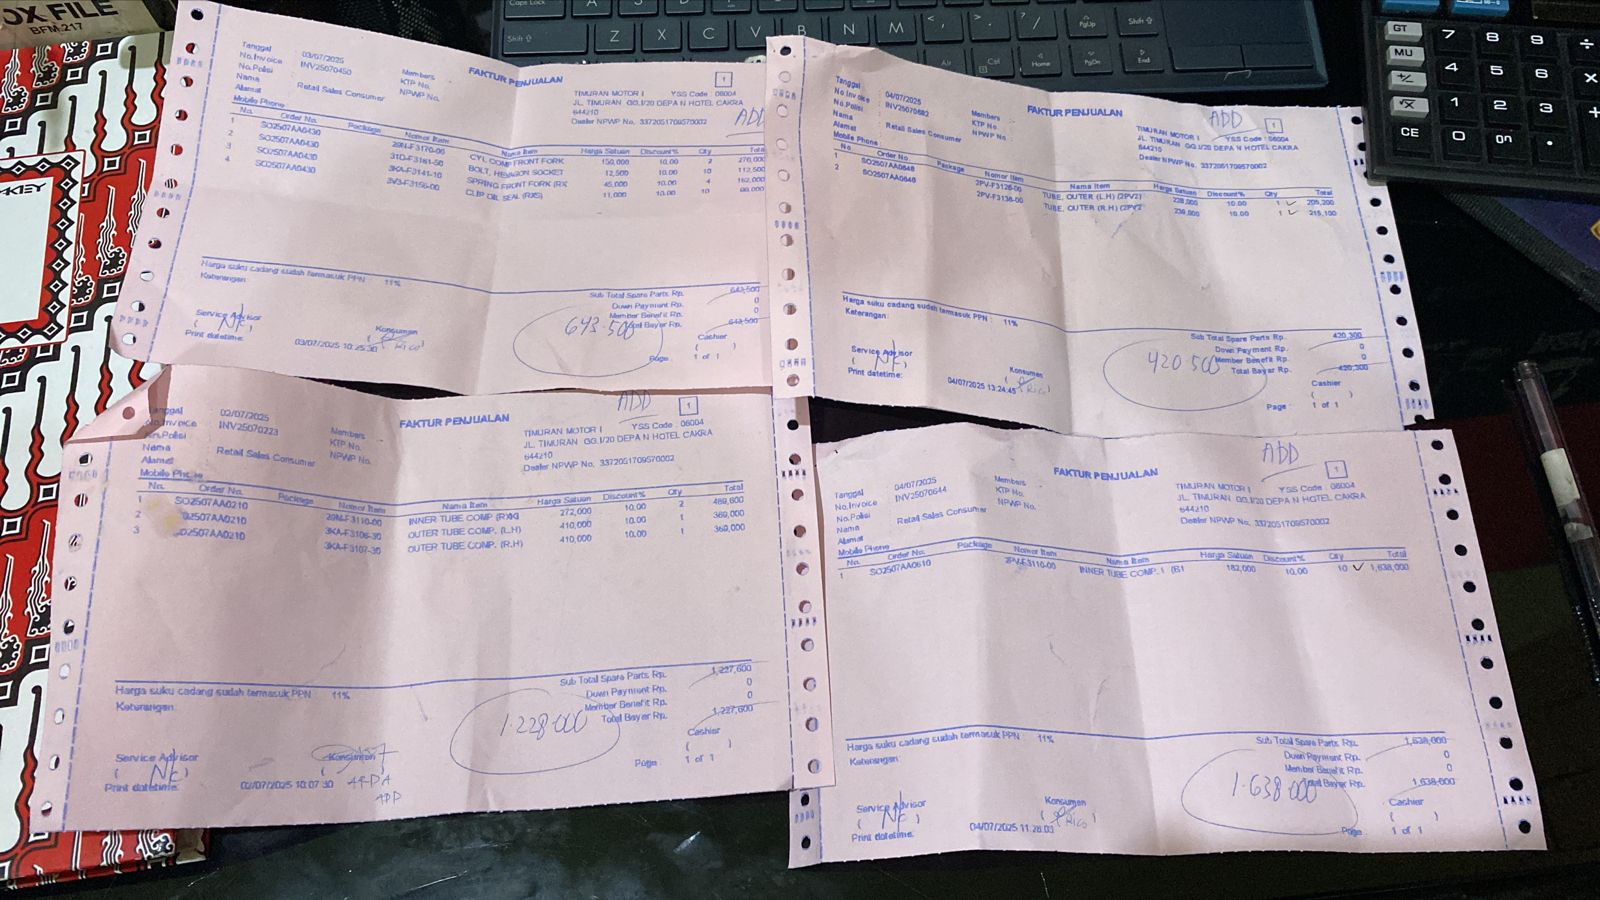 OX FILE
BFM-217
Caps Lock
Shift
Z X C V B N M
Alt
Ctrl
Home
PgUp
PgDn
End
Shift
GT
MU
CE
7 8 9 ÷
4 5 6 X
1 2 3 +
0 00 •
FAKTUR PENJUALAN
1
Tanggal : 03/07/2025
No.Invoice : INV25070450
No.Polisi
Nama : Retail Sales Consumer
Alamat
Mobile Phone
Members
KTP No.
NPWP No.
TIMURAN MOTOR I YSS Code : 06004
JL. TIMURAN GG.I/20 DEPA N HOTEL CAKRA
644210
Dealer NPWP No. 3372051709570002
ADD
No. Order No. Package Nomor Item Nama Item Harga Satuan Discount% Qty Total
1 SO2507AA0430 29N-F3170-00 CYL COMP FRONT FORK 150,000 10.00 2 270,000
2 SO2507AA0430 31D-F3161-50 BOLT, HEXAGON SOCKET 12,500 10.00 10 112,500
3 SO2507AA0430 3KA-F3141-10 SPRING FRONT FORK (RX 45,000 10.00 4 162,000
4 SO2507AA0430 3V3-F3156-00 CLIP OIL SEAL (RXS) 11,000 10.00 10 99,000
Harga suku cadang sudah termasuk PPN 11%
Keterangan:
Sub Total Spare Parts Rp. 643,500
Down Payment Rp. 0
Member Benefit Rp. 0
Total Bayar Rp. 643,500
643.500
Service Advisor
Konsumen
Rico
Cashier
Print datetime: 03/07/2025 10:25:30
Page : 1 of 1
FAKTUR PENJUALAN
1
Tanggal : 04/07/2025
No.Invoice : INV25070682
No.Polisi
Nama : Retail Sales Consumer
Alamat
Mobile Phone
Members
KTP No.
NPWP No.
ADD
TIMURAN MOTOR I YSS Code : 06004
JL. TIMURAN GG.I/20 DEPA N HOTEL CAKRA
644210
Dealer NPWP No. 3372051709570002
No. Order No. Package Nomor Item Nama Item Harga Satuan Discount% Qty Total
1 SO2507AA0648 2PV-F3126-00 TUBE, OUTER (L.H) (2PV2 228,000 10.00 1 205,200
2 SO2507AA0648 2PV-F3136-00 TUBE, OUTER (R.H) (2PV2 239,000 10.00 1 215,100
Harga suku cadang sudah termasuk PPN : 11%
Keterangan:
Sub Total Spare Parts Rp. 420,300
Down Payment Rp. 0
Member Benefit Rp. 0
Total Bayar Rp. 420,300
420.500
Service Advisor
Konsumen
Rico
Cashier
Print datetime: 04/07/2025 13:24:45
Page : 1 of 1
FAKTUR PENJUALAN
1
Tanggal : 02/07/2025
No.Invoice : INV25070223
No.Polisi
Nama : Retail Sales Consumer
Alamat
Mobile Phone
Members
KTP No.
NPWP No.
ADD
TIMURAN MOTOR I YSS Code : 06004
JL. TIMURAN GG.I/20 DEPA N HOTEL CAKRA
644210
Dealer NPWP No. 3372051709570002
No. Order No. Package Nomor Item Nama Item Harga Satuan Discount% Qty Total
1 SO2507AA0210 29N-F3110-00 INNER TUBE COMP (RXK) 272,000 10.00 2 489,600
2 SO2507AA0210 3KA-F3106-30 OUTER TUBE COMP. (L.H) 410,000 10.00 1 369,000
3 SO2507AA0210 3KA-F3107-30 OUTER TUBE COMP. (R.H) 410,000 10.00 1 369,000
Harga suku cadang sudah termasuk PPN 11%
Keterangan:
Sub Total Spare Parts Rp. 1,227,600
Down Payment Rp. 0
Member Benefit Rp. 0
Total Bayar Rp. 1,227,600
1.228.000
Service Advisor
Konsumen
ADD
Cashier
Print datetime: 02/07/2025 10:07:30
Page : 1 of 1
FAKTUR PENJUALAN
1
Tanggal : 04/07/2025
No.Invoice : INV25070644
No.Polisi
Nama : Retail Sales Consumer
Alamat
Mobile Phone
Members
KTP No.
NPWP No.
ADD
TIMURAN MOTOR I YSS Code : 06004
JL. TIMURAN GG.I/20 DEPA N HOTEL CAKRA
644210
Dealer NPWP No. 3372051709570002
No. Order No. Package Nomor Item Nama Item Harga Satuan Discount% Qty Total
1 SO2507AA0610 2PV-F3110-00 INNER TUBE COMP.1 (B1 182,000 10.00 10 1,638,000
Harga suku cadang sudah termasuk PPN : 11%
Keterangan:
Sub Total Spare Parts Rp. 1,638,000
Down Payment Rp. 0
Member Benefit Rp. 0
Total Bayar Rp. 1,638,000
1.638.000
Service Advisor
Konsumen
Rico
Cashier
Print datetime: 04/07/2025 11:28:03
Page : 1 of 1